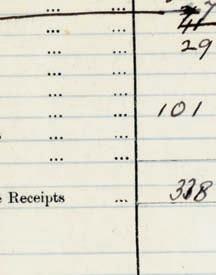 ... ...
... ...
... ... 29
... ...
... ...
... ... 101
... ...
... ...
Receipts ... 338